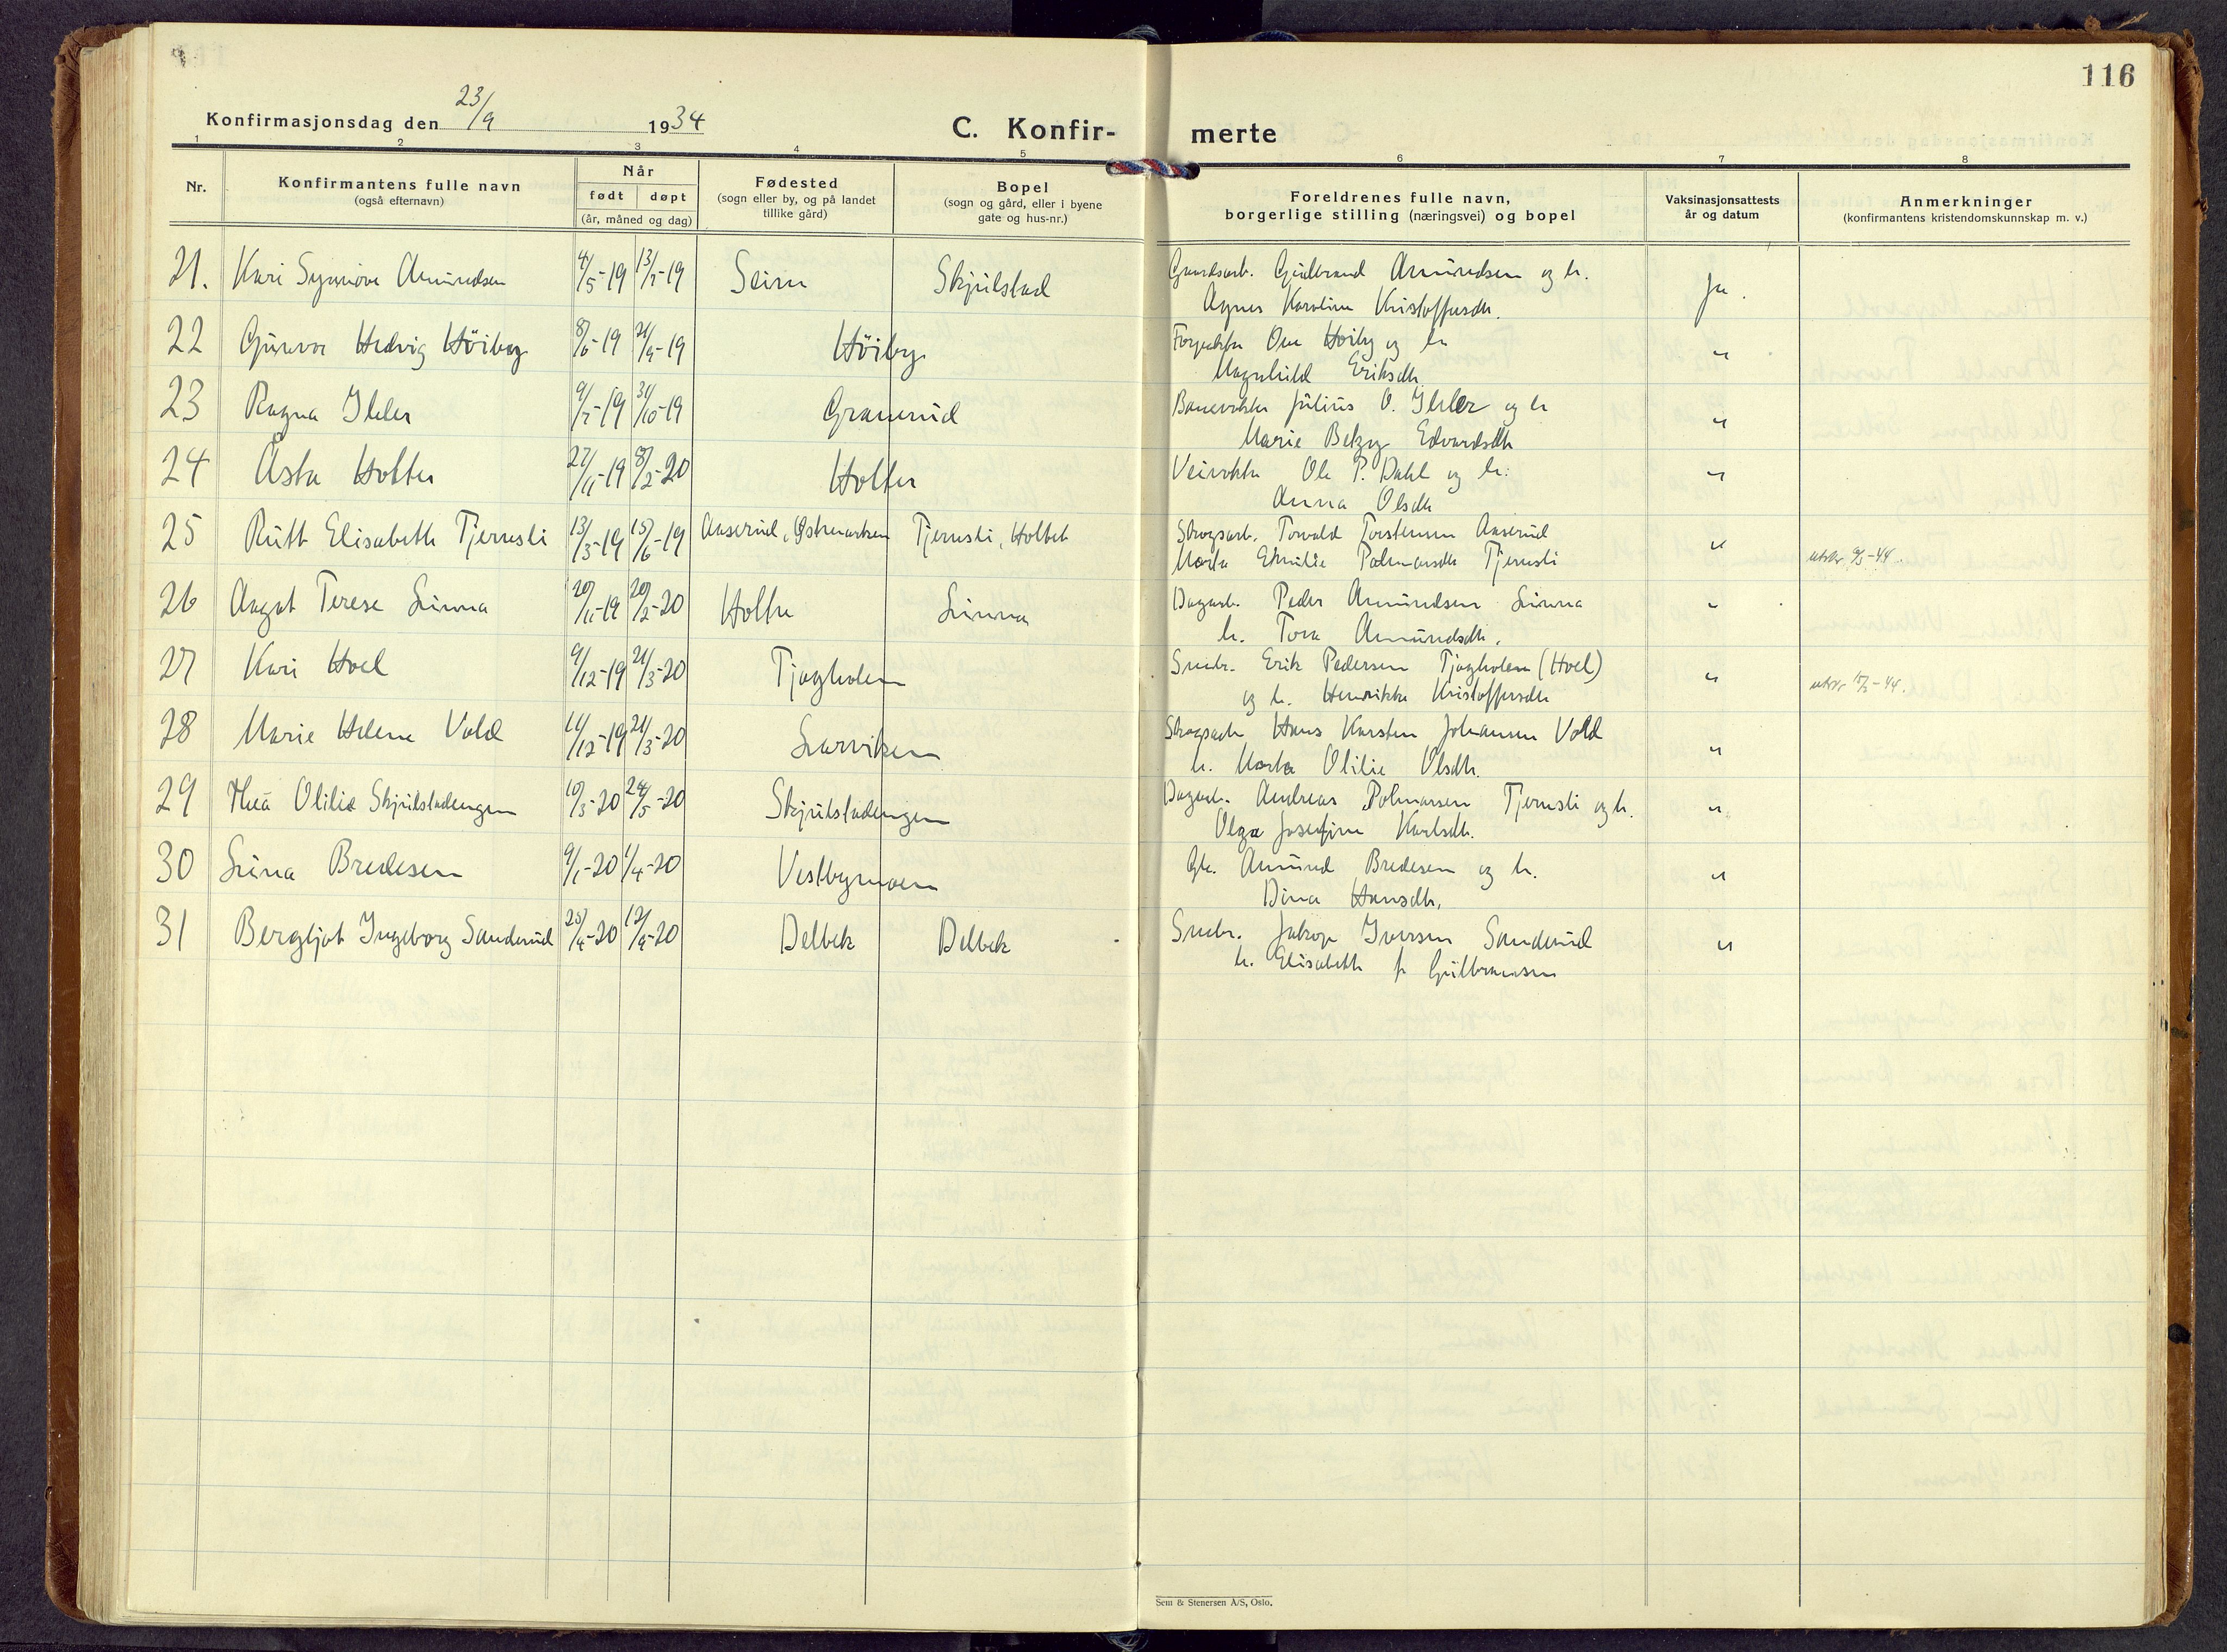 116
Konfirmasjonsdag den 23/9 1934
C. Konfir- merte
1 2 3 4 5 6 7 8
Nr.
Konfirmantens fulle navn
(også efternavn)
Når
født døpt
(år, måned og dag)
Fødested
(sogn eller by, og på landet
tillike gård)
Bopel
(sogn og gård, eller i byene
gate og hus-nr.)
Foreldrenes fulle navn,
borgerlige stilling (næringsvei) og bopel
Vaksinasjonsattests
år og datum
Anmerkninger
(konfirmantens kristendomskunnskap m. v.)
21. Kari Synnöve Amundsen 4/5-19 13/7-19 Seim Skjulstad Gaardsarb. Gudbrand Amundsen og h. Ja.
Agnes Karoline Kristoffersdtr.
22 Gunvor Hedvig Höiby 8/6-19 21/9-19 Höiby Ove Höiby og h "
Magnhild Eriksdtr
23 Ragna Ihler 9/7-19 31/10-19 Granerud Banevokter Julius O. Ihler og h "
Marie Betzy Edvardsdtr
24 Åsta Holter 27/11-19 8/2-20 Holter Veivokter Ole P. Dahl og h. "
Anna Olsdtr
25 Rutt Elisabeth Tjernsli 13/3-19 15/6-19 Aaserud, Östmarken Tjernsli, Holtet Skogsarb. Torvald Torstensen Aaserud
Marta Emilie Palmarsdtr Tjernsli " utskr 9/3-44.
26 Aagot Terese Linna 20/11-19 20/2-20 Holter Linna Dagarb. Peder Amundsen Linna "
h. Tora Amundsdtr.
27 Kari Hoel 9/12-19 21/3-20 Tjagholen Smbr. Erik Pedersen Tjagholen (Hoel) "
og h. Henrikke Kristoffersdtr utskr 15/3-44.
28 Marie Helene Vold 11/12-19 21/3-20 Larviken Skogsarb Hans Karsten Johansen Vold
h. Marta Olilie Olsdtr. "
29 Thea Olilie Skjulstadengen 10/3-20 24/5-20 Skjulstadengen Dagarb. Andreas Palmarsen Tjernsli og h. "
Olga Josefine Karlsdtr.
30 Lina Bredesen 9/1-20 1/4-20 Vestbymoen Gbr. Amund Bredesen og h. "
Dina Hansdtr.
31 Bergljot Ingeborg Sanderud 25/4-20 12/9-20 Delbek Delbek Smbr. Jakop Iversen Sanderud "
h. Elisabeth f. Gulbransen
Sem & Stenersen A/S, Oslo.